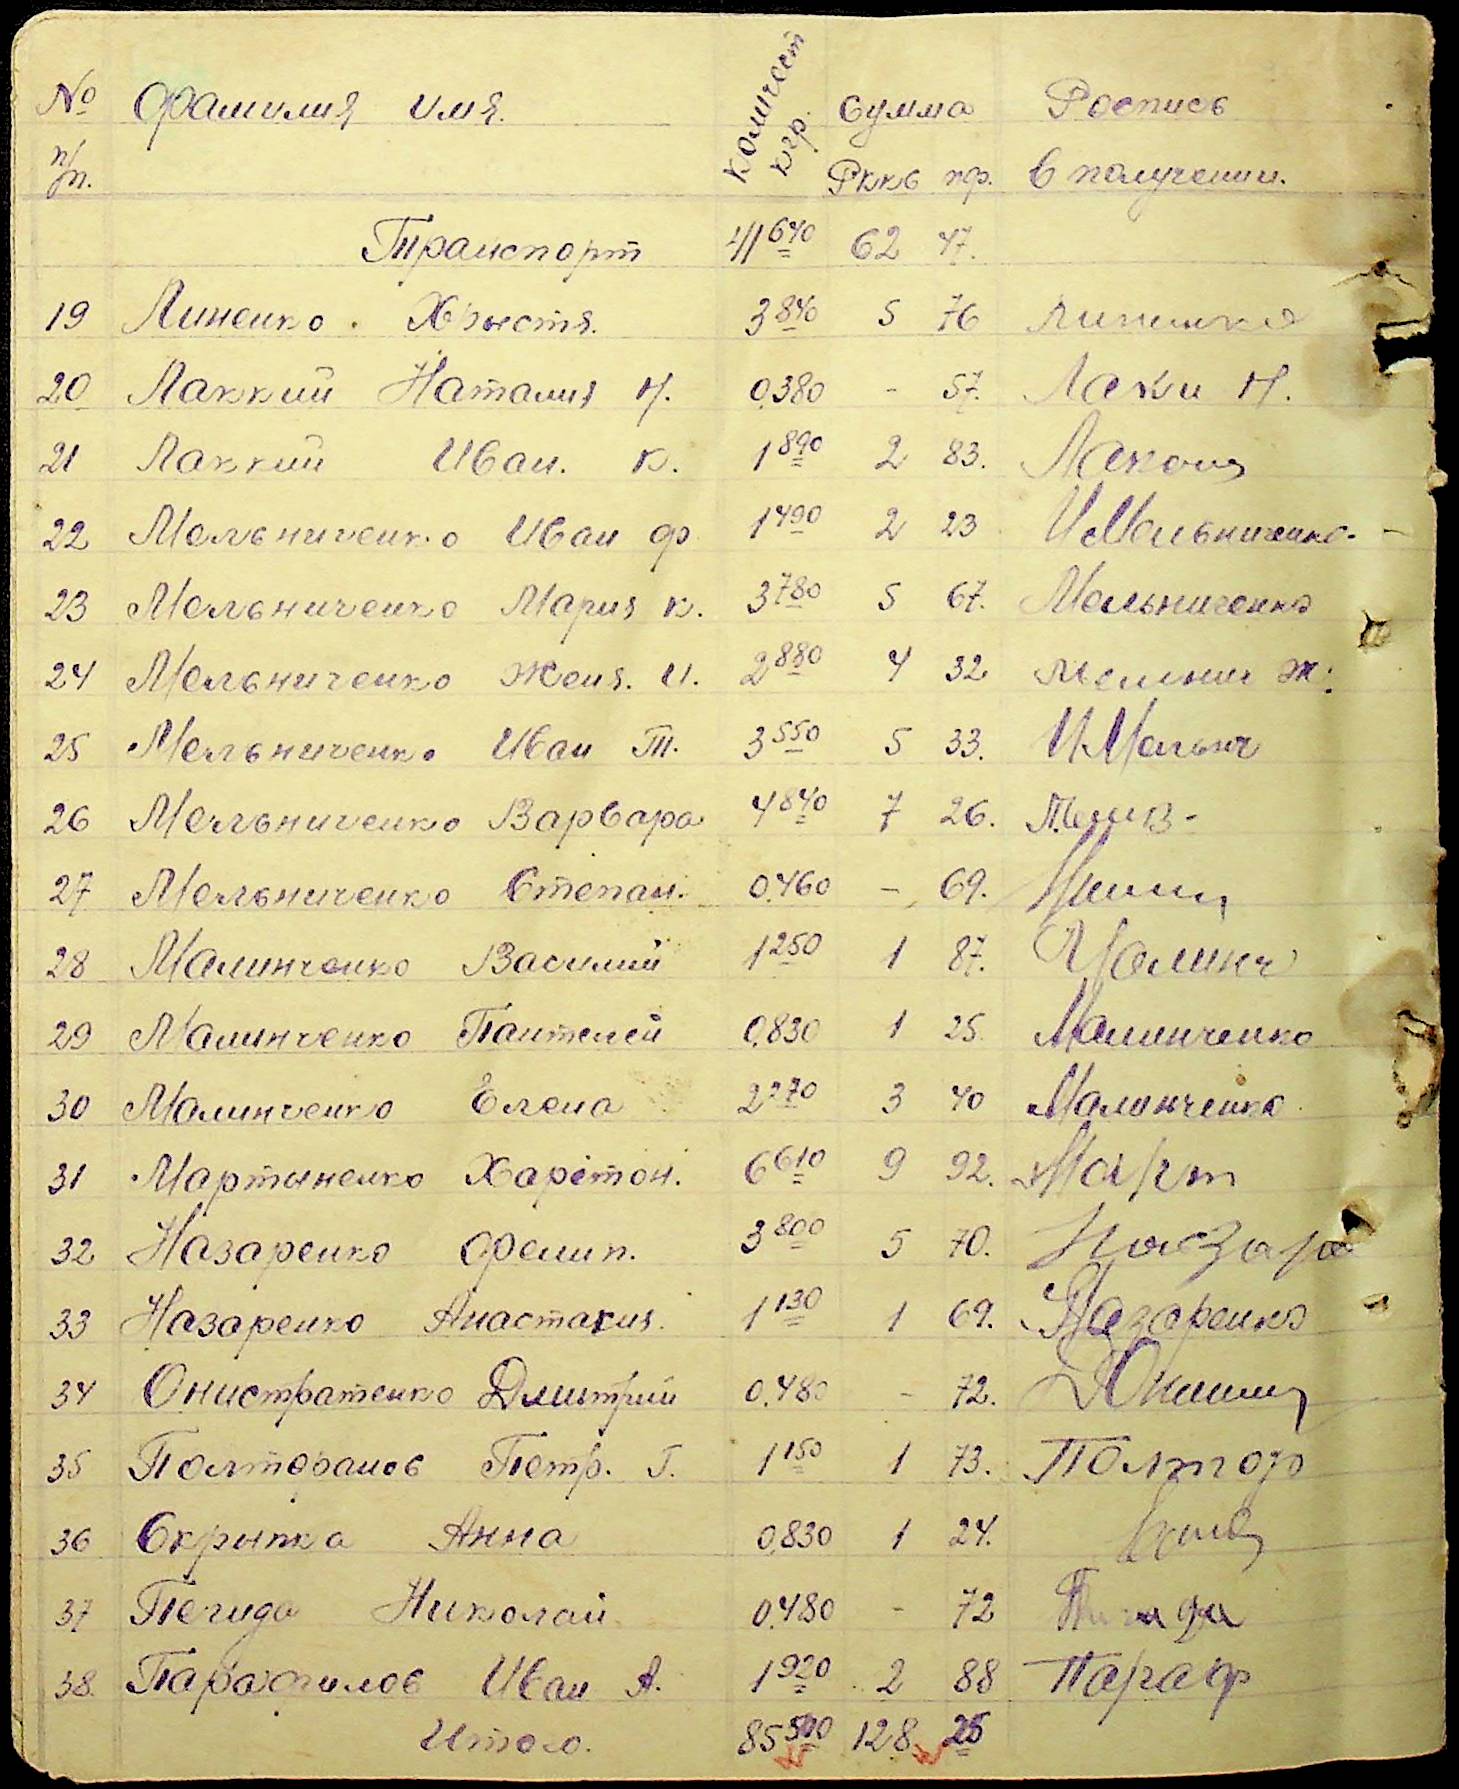 № Фамилия имя. Количест Сумма Роспись
п/п. кгр. Рккв пф. в получении.
Транспорт 41640 62 47.
19 Линенко Христя. 3840 5 76 Линенко
20 Лаккий Наталия Н. 0,380 - 57. Лаки Н.
21 Лаккий Иван. К. 1890 2 83.
22 Мельниченко Иван Ф 1490 2 23 И Мельниченко. -
23 Мельниченко Мария К. 3780 5 67. Мельниченко
24 Мельниченко Женя. И. 2880 4 32 Ж.
25 Мельниченко Иван Т. 3550 5 33. И Мельнич
26 Мельниченко Варвара 4840 7 26.
27 Мельниченко Степан. 0,460 - 69.
28 Малинченко Василий 1250 1 87. Малинч
29 Малинченко Пантелей 0,830 1 25. Малинченко
30 Малинченко Елена 2270 3 40 Малинченко
31 Мартыненко Харетон. 6610 9 92. Март
32 Назаренко Филип. 3800 5 70. Назар
33 Назаренко Анастасия. 1130 1 69. Назаренко
34 Онистратенко Дмитрий 0,480 - 72.
35 Полторанов Петр. Г. 1150 1 73. Полтор
36 Скрыпка Анна 0,830 1 24.
37 Печида Николай 0,480 - 72
38. Парафилов Иван А. 1920 2 88 Параф
Итого. 85500 128 25